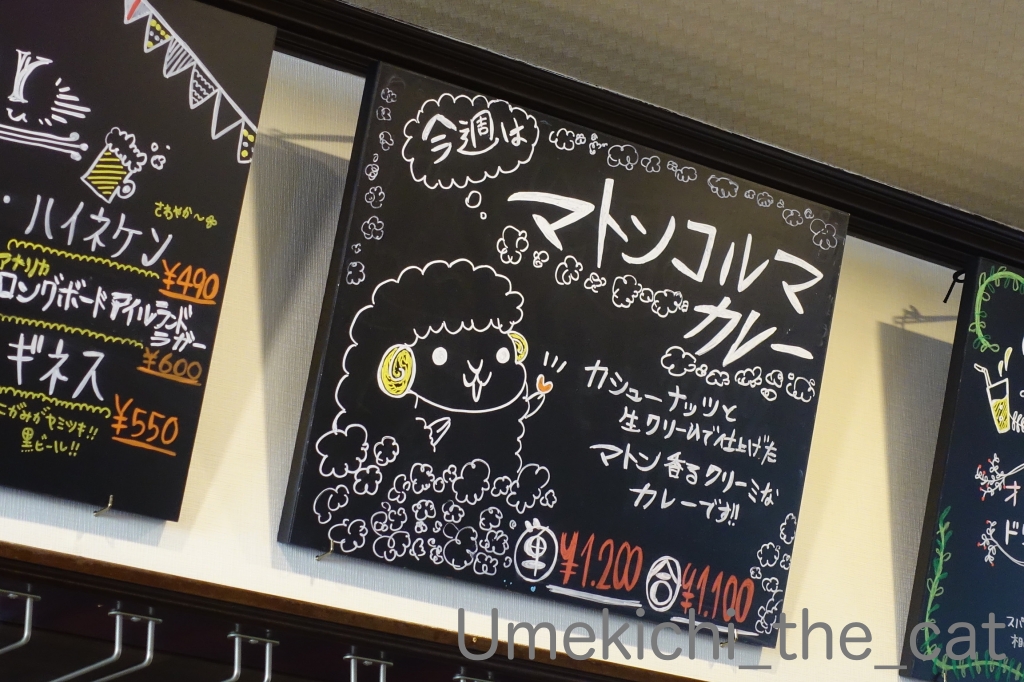 さわやか〜
ハイネケン
¥490
アメリカ
ロングボードアイルランド
ラガー
¥600
ギネス
¥550
にがみがヤミツキ!!
黒ビール!!
今週は
マトンコルマ
カレー
カシューナッツと
生クリームで仕上げた
マトン香るクリーミな
カレーです!!
単 ¥1.200 合 ¥1.100
Umekichi_the_cat